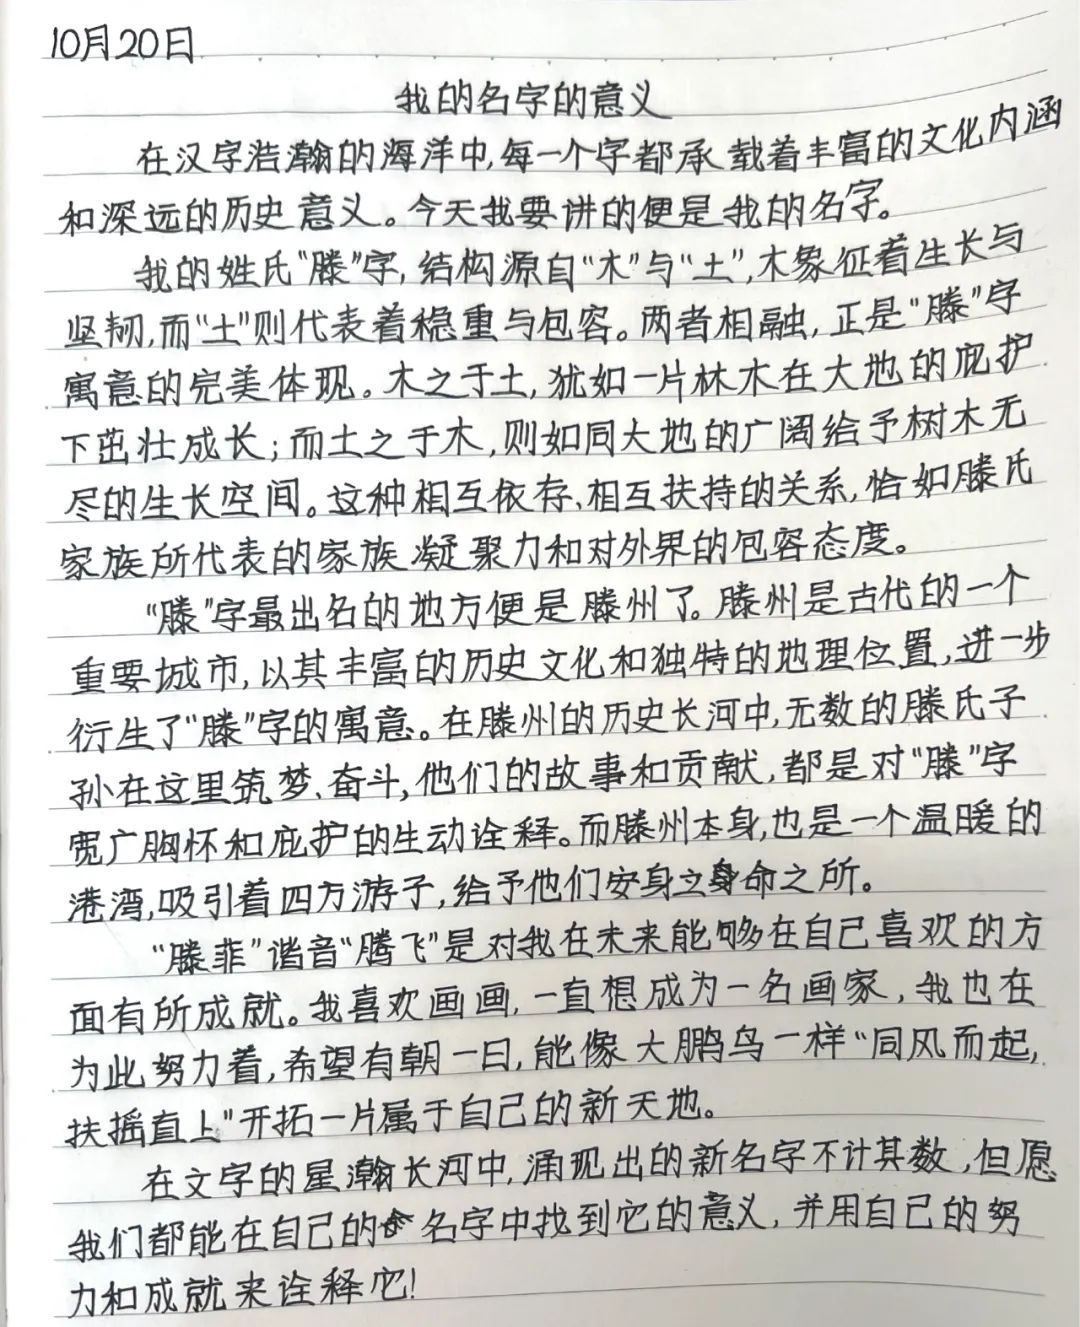 10月20日
我的名字的意义
在汉字浩瀚的海洋中,每一个字都承载着丰富的文化内涵
和深远的历史意义。今天我要讲的便是我的名字。
我的姓氏“滕”字,结构源自“木”与“土”,木象征着生长与
坚韧,而“土”则代表着稳重与包容。两者相融,正是“滕”字
寓意的完美体现。木之于土,犹如一片林木在大地的庇护
下茁壮成长;而土之于木,则如同大地的广阔给予树木无
尽的生长空间。这种相互依存、相互扶持的关系,恰如滕氏
家族所代表的家族凝聚力和对外界的包容态度。
“滕”字最出名的地方便是滕州了。滕州是古代的一个
重要城市,以其丰富的历史文化和独特的地理位置,进一步
衍生了“滕”字的寓意。在滕州的历史长河中,无数的滕氏子
孙在这里筑梦、奋斗,他们的故事和贡献,都是对“滕”字
宽广胸怀和庇护的生动诠释。而滕州本身,也是一个温暖的
港湾,吸引着四方游子,给予他们安身立命之所。
“滕菲”谐音“腾飞”是对我在未来能够在自己喜欢的方
面有所成就。我喜欢画画,一直想成为一名画家,我也在
为此努力着,希望有朝一日,能像大鹏鸟一样“同风而起,
扶摇直上”开拓一片属于自己的新天地。
在文字的星瀚长河中,涌现出的新名字不计其数,但愿
我们都能在自己的名字中找到它的意义,并用自己的努
力和成就来诠释它!